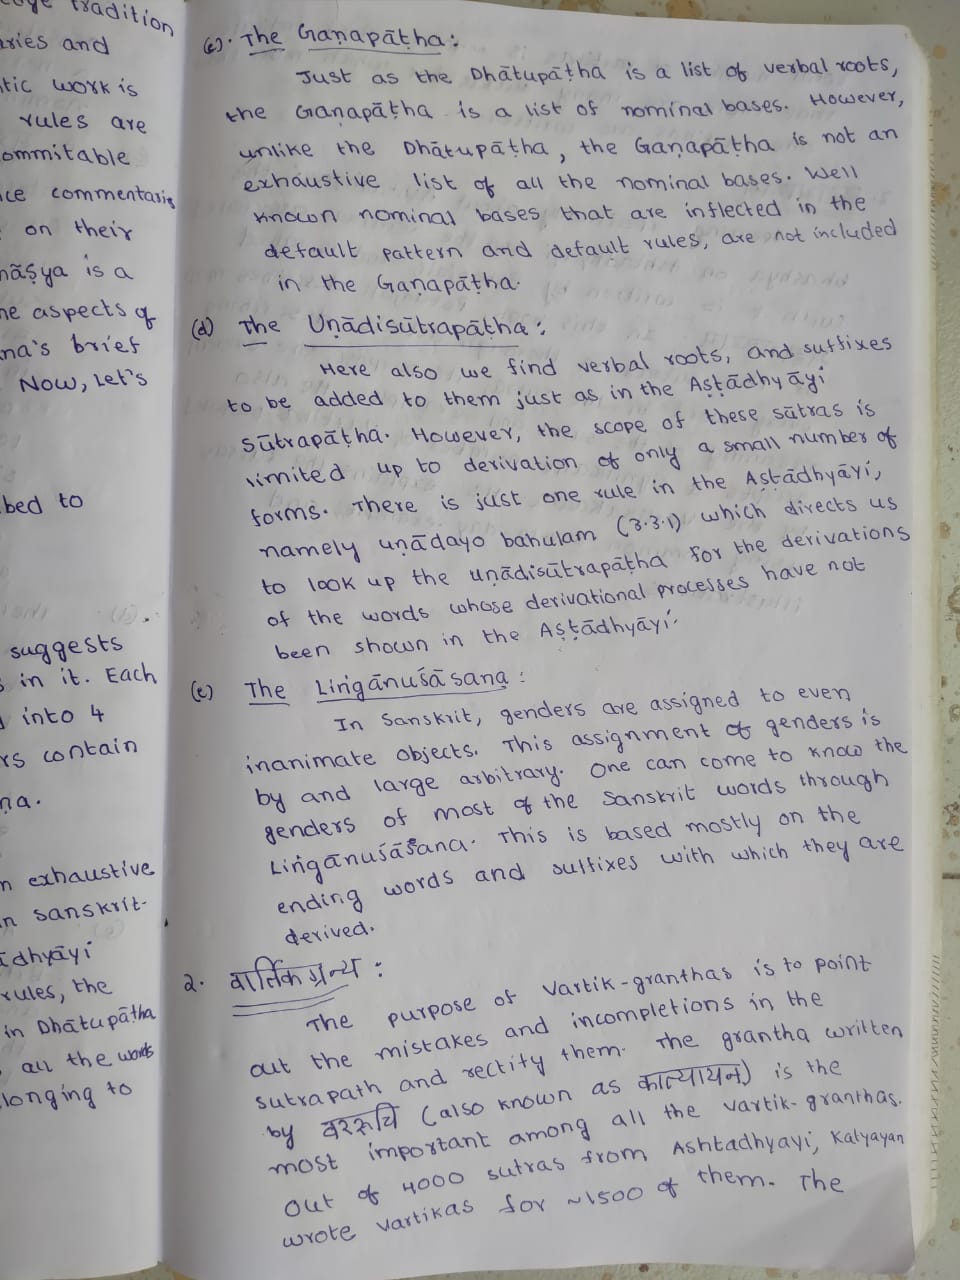 tradition
ries and
tic work is
rules are
ommitable
ce commentaris
on their
hāṣya is a
he aspects of
na's brief
Now, Let's
bed to
suggests
s in it. Each
into 4
rs contain
na.
n exhaustive
n sanskrit-
ādhyāyi
rules, the
in Dhātupāṭha
all the words
longing to
(c). The Gaṇapāṭha:
Just as the Dhātupāṭha is a list of verbal roots,
the Gaṇapāṭha is a list of nominal bases. However,
unlike the Dhātupāṭha, the Gaṇapāṭha is not an
exhaustive list of all the nominal bases. Well
known nominal bases that are inflected in the
default pattern and default rules, are not included
in the Gaṇapāṭha.
(d) The Uṇādisūtrapāṭha:
Here also we find verbal roots, and suffixes
to be added to them just as in the Aṣṭādhyāyi
Sūtrapāṭha. However, the scope of these sūtras is
limited up to derivation of only a small number of
forms. There is just one rule in the Aṣṭādhyāyi,
namely uṇādayo bahulam (3.3.1) which directs us
to look up the uṇādisūtrapāṭha for the derivations
of the words whose derivational processes have not
been shown in the Aṣṭādhyāyi.
(e) The Liṅgānuśāsana:
In Sanskrit, genders are assigned to even
inanimate objects. This assignment of genders is
by and large arbitrary. One can come to know the
genders of most of the Sanskrit words through
Liṅgānuśāsana. This is based mostly on the
ending words and suffixes with which they are
derived.
2. वार्तिक ग्रन्थ :
The purpose of Vartik-granthas is to point
out the mistakes and incompletions in the
sutrapath and rectity them. The grantha written
by वररुचि (also known as कात्यायन) is the
most important among all the vartik-granthas.
Out of 4000 sutras from Ashtadhyayi, Katyayan
wrote vartikas for ~1500 of them. The